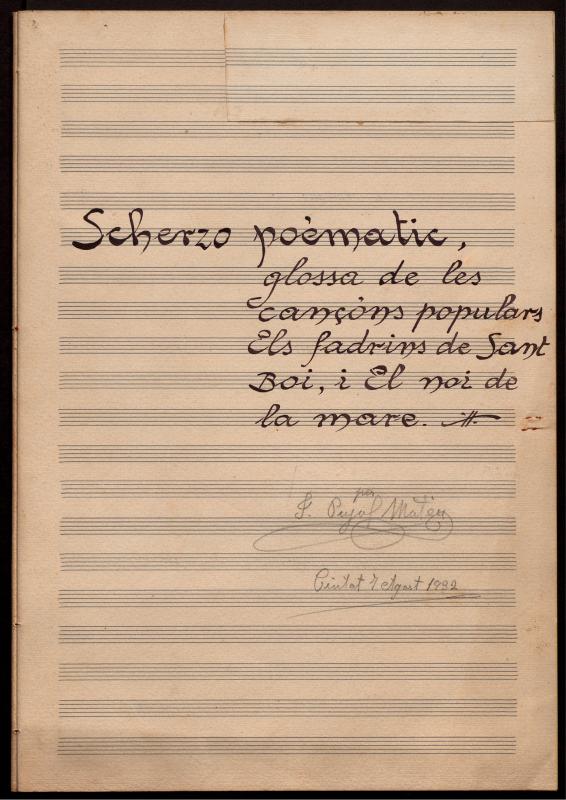 Scherzo poèmatic,
glossa de les
cançòns populars
Els fadrins de Sant
Boi, i El noi de
la mare.
per
F. Pujol Mateu
Ciutat 7 Agost 1932